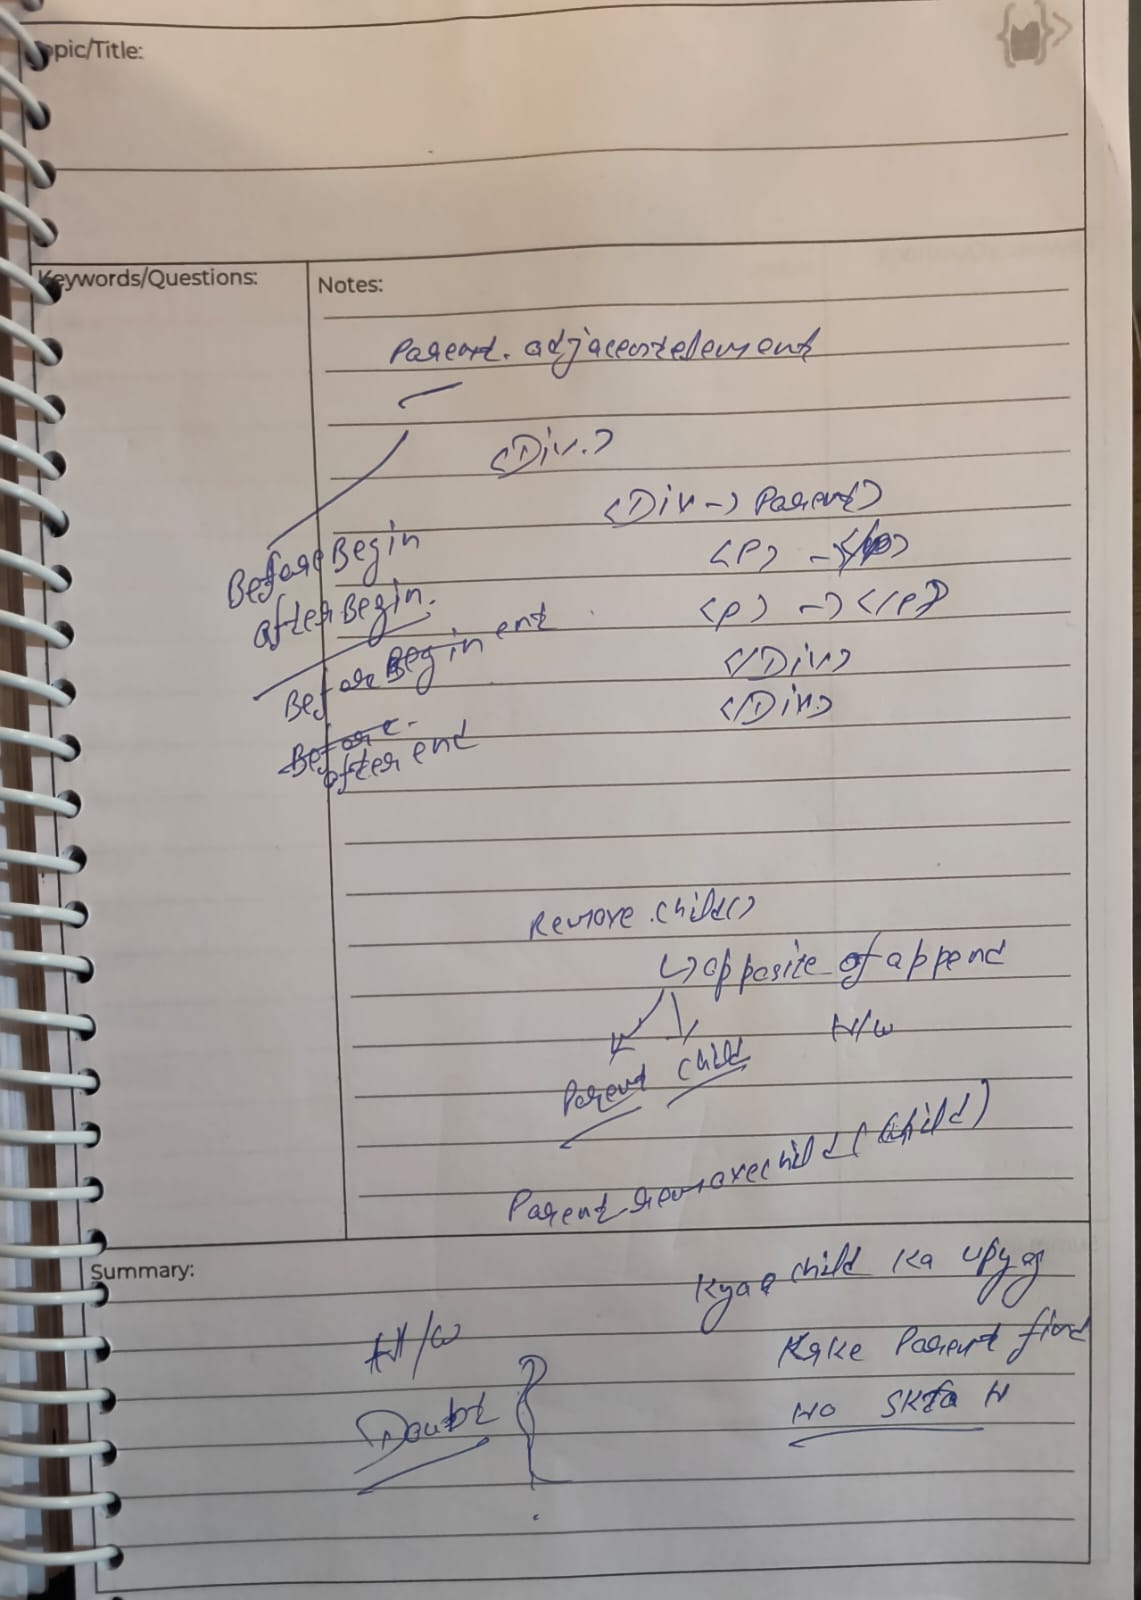 Topic/Title:
Keywords/Questions:
Notes:
Parent. adjacentelement
<Div.>
<Div -> Parent>
<P> -> </p>
<p> -> </p>
</Div>
</Div>
Before Begin
after Begin.
Before Begin end
Before.
after end
Remove.child()
↳ opposite of append
H/W
Parent child
Parent removechild (child)
Summary:
Kya child Ka upyog
Krke Parent find
Ho Skta H
H/W
Doubt ?